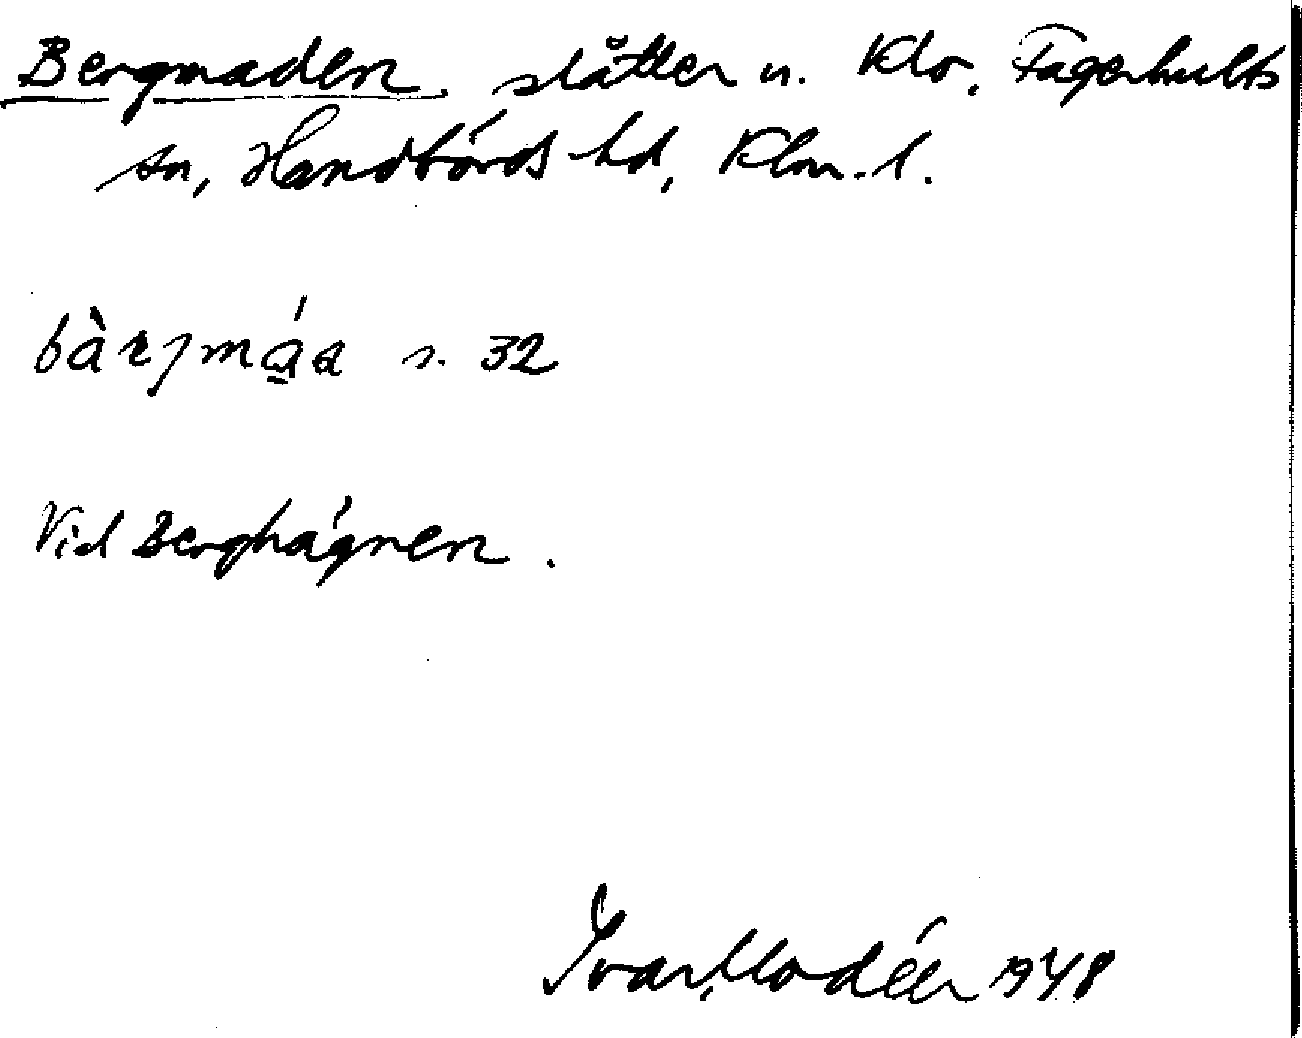 Bergmaden slåtter u. Klo, Fagerhults
sn, Handbörds hd, Klm. l.
bàrjmáa s. 32
Vid Berghägnen.
Ivar Modéer 1948